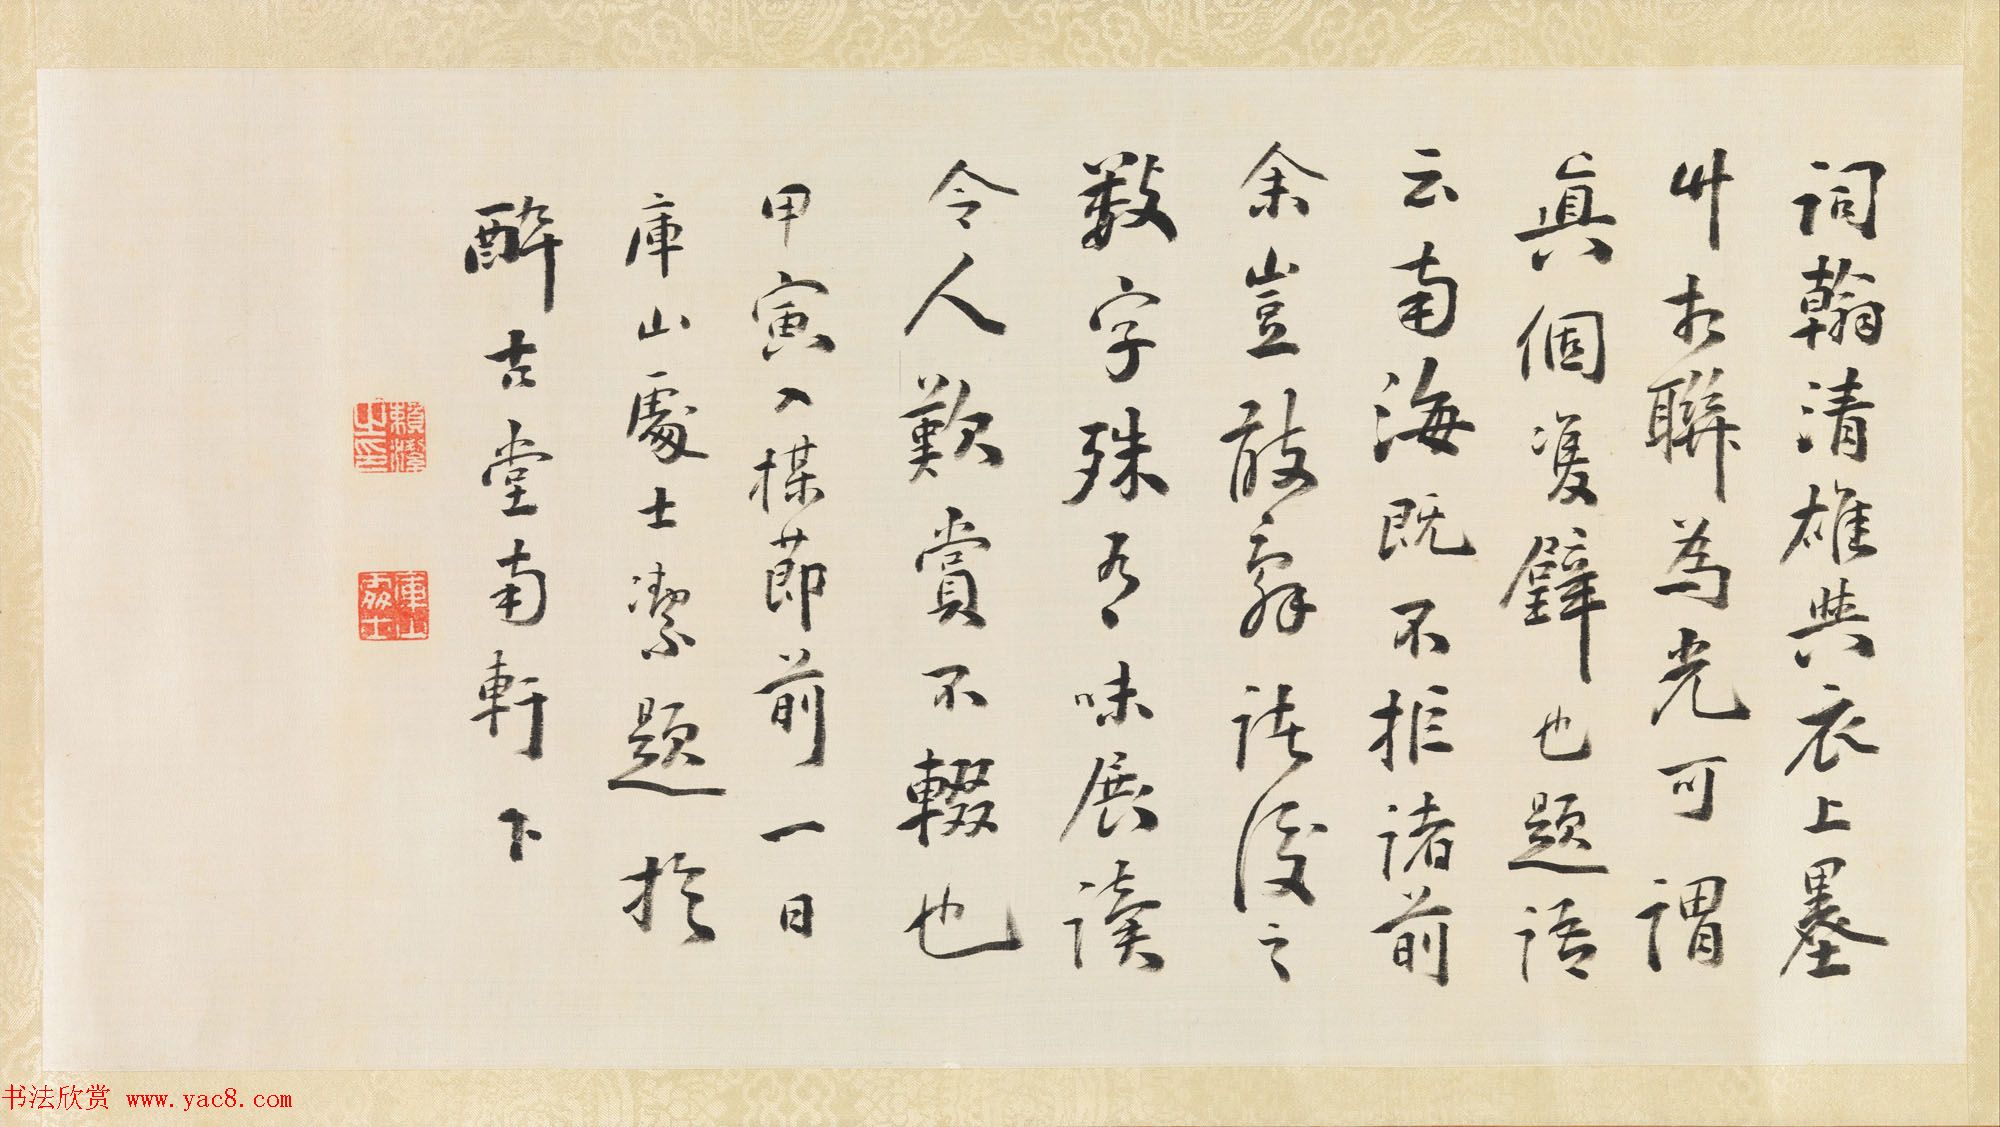 詞翰清雄與衣上墨
艸相聯為光可謂
真個雙璧也題語
云南海既不拒諸前
余豈敢辭諸後之
數字殊有味展讀
令人歎賞不輟也
甲寅入楳節前一日
庫山處士潔題於
醉古堂南軒下
賴潔之印
庫山處士
书法欣赏 www.yac8.com